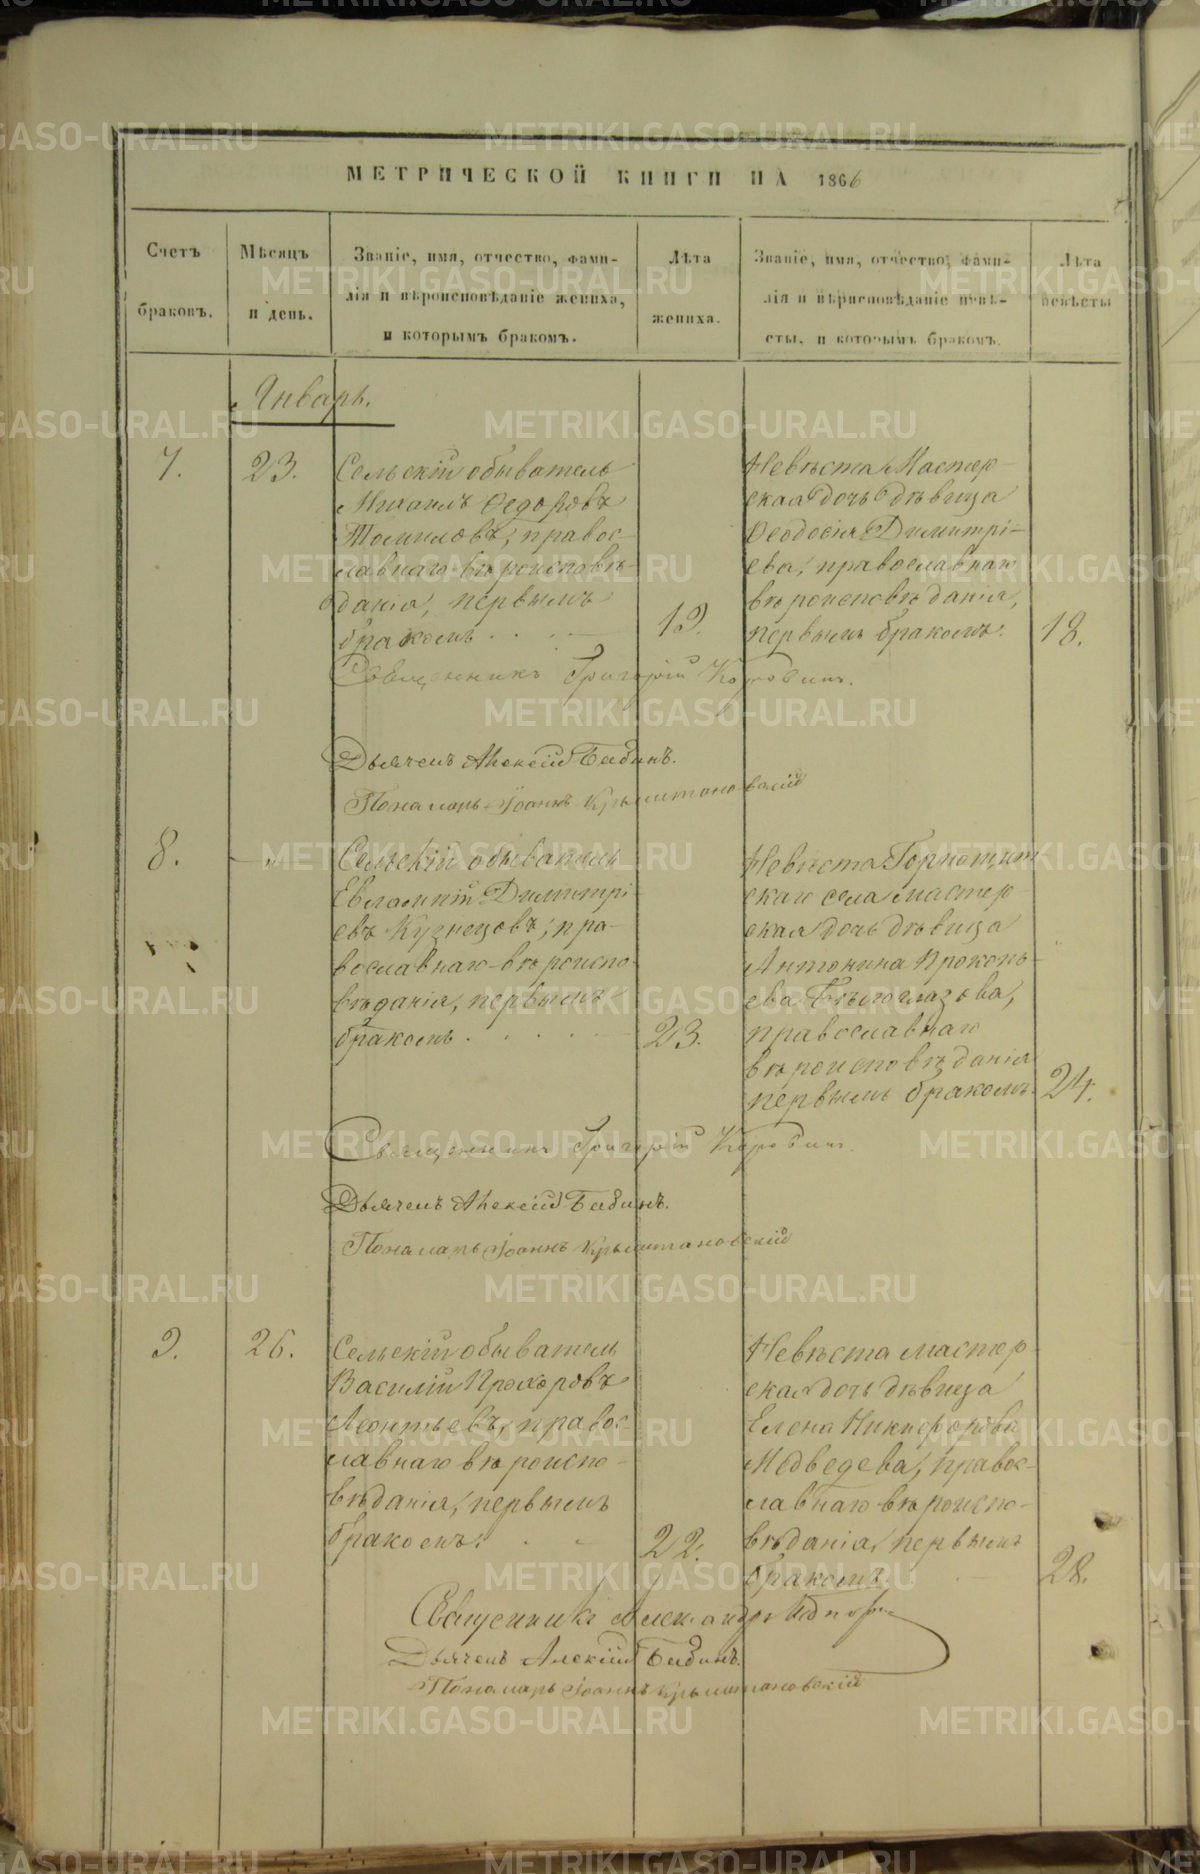 МЕТРИЧЕСКОЙ КНИГИ НА 1866
Счетъ браковъ.
Мѣсяцъ и день.
Званіе, имя, отчество, фами-
лія и вѣроисповѣданіе жениха,
и которымъ бракомъ.
Лѣта жениха.
Званіе, имя, отчество, фами-
лія и вѣрисповѣданіе невѣ-
сты, и которымъ бракомъ.
Лѣта невѣсты
Январь.
7.
23.
Сельскій обыватель
Михаилъ Ѳедоровъ
Томиловъ, правос-
лавнаго вѣроисповѣ-
данія, первымъ
бракомъ
19.
Невѣста Мастер-
ская дочь дѣвица
Ѳеодосія Димитрі-
ева, православнаго
вѣроисповѣданія,
первымъ бракомъ.
18.
Священникъ Григорій Коровинъ.
Дьячекъ Алексій Бабинъ.
Пономарь Іоаннъ
8.
"
Сельскій обыватель
Евлампій Димитрі-
евъ Кузнецовъ, пра-
вославнаго вѣроиспо-
вѣданія, первымъ
бракомъ.
23.
Невѣста Горнощит
скаго села мастер-
ская дочь дѣвица
Антонина Прокопь-
ева Бѣлоглазова,
православнаго
вѣроисповѣданія
первымъ бракомъ.
24.
Священникъ Григорій Коровинъ.
Дьячекъ Алексій Бабинъ.
Пономарь Іоаннъ
9.
26.
Сельскій обыватель
Василій Прохоровъ
Леонтьевъ, правос-
лавнаго вѣроиспо-
вѣданія, первымъ
бракомъ.
22.
Невѣста мастер-
ская дочь дѣвица
Елена Никифорова
Медведева, правос-
лавнаго вѣроиспо-
вѣданія, первымъ
бракомъ
28.
Священникъ Александръ
Дьячекъ Алексій Бабинъ.
Пономарь Іоаннъ
METRIKI.GASO-URAL.RU